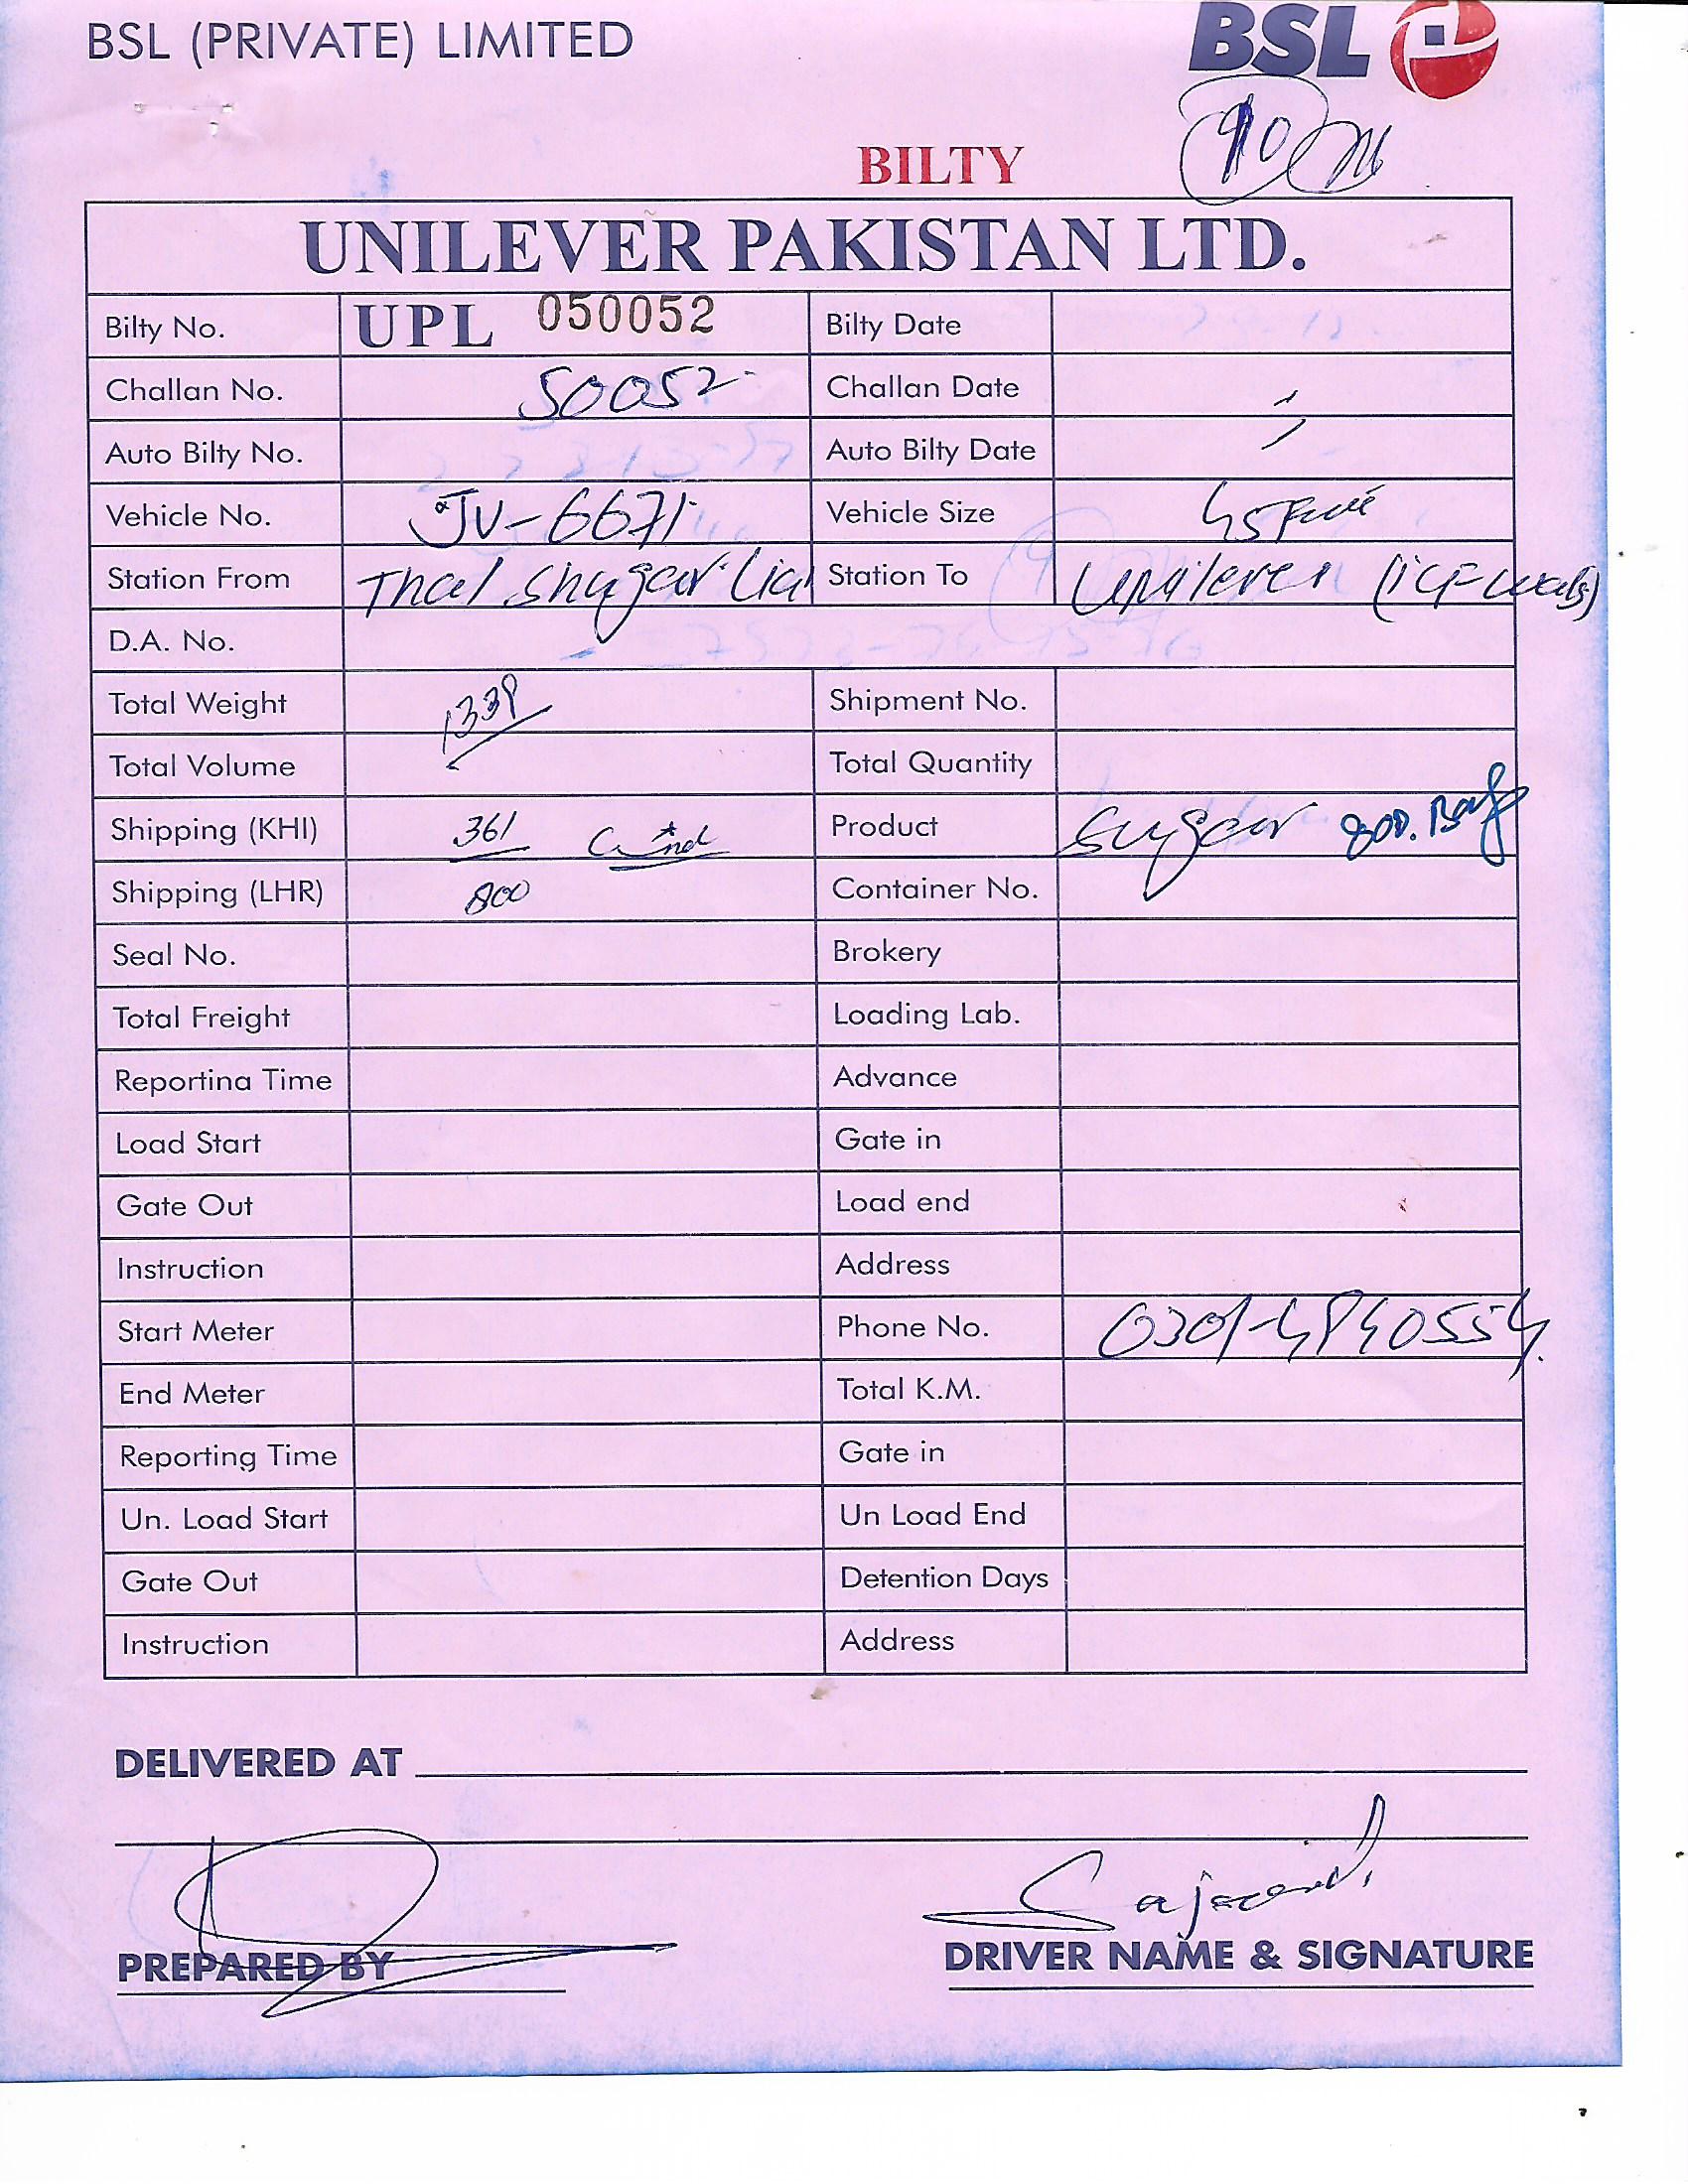 BSL (PRIVATE) LIMITED
BSL
BILTY
UNILEVER PAKISTAN LTD.
Bilty No. UPL 050052 Bilty Date
Challan No. 50052 Challan Date
Auto Bilty No. Auto Bilty Date
Vehicle No. JV-6671 Vehicle Size
Station From Thal Shugar Station To Unilever
D.A. No.
Total Weight 1339 Shipment No.
Total Volume Total Quantity
Shipping (KHI) 361 Product Sugar 800. Bags
Shipping (LHR) 800 Container No.
Seal No. Brokery
Total Freight Loading Lab.
Reportina Time Advance
Load Start Gate in
Gate Out Load end
Instruction Address
Start Meter Phone No. 0301-4840554
End Meter Total K.M.
Reporting Time Gate in
Un. Load Start Un Load End
Gate Out Detention Days
Instruction Address
DELIVERED AT
PREPARED BY DRIVER NAME & SIGNATURE